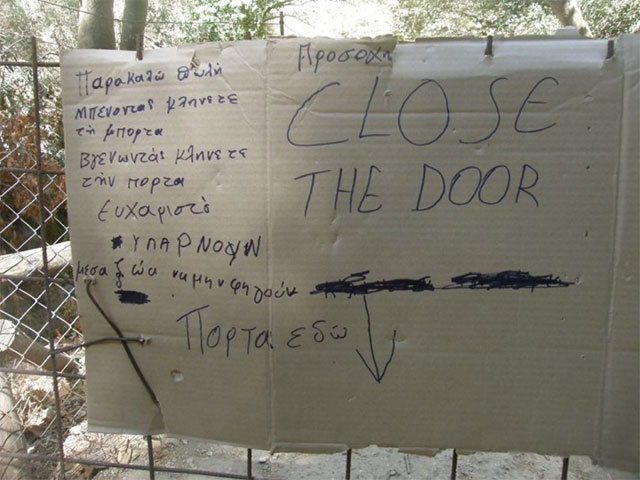 Παρακαλώ πωλή
Μπένοντας κλήνετε
τή μπορτα
Βγένωντάς κλήνετε
τήν πορτα
Ευχαριστό
ΥΠΑΡΝΟΥΝ
μέσα ζώα να μην φηγούν
Προσοχη
CLOSE
THE DOOR
Πορτα εδώ